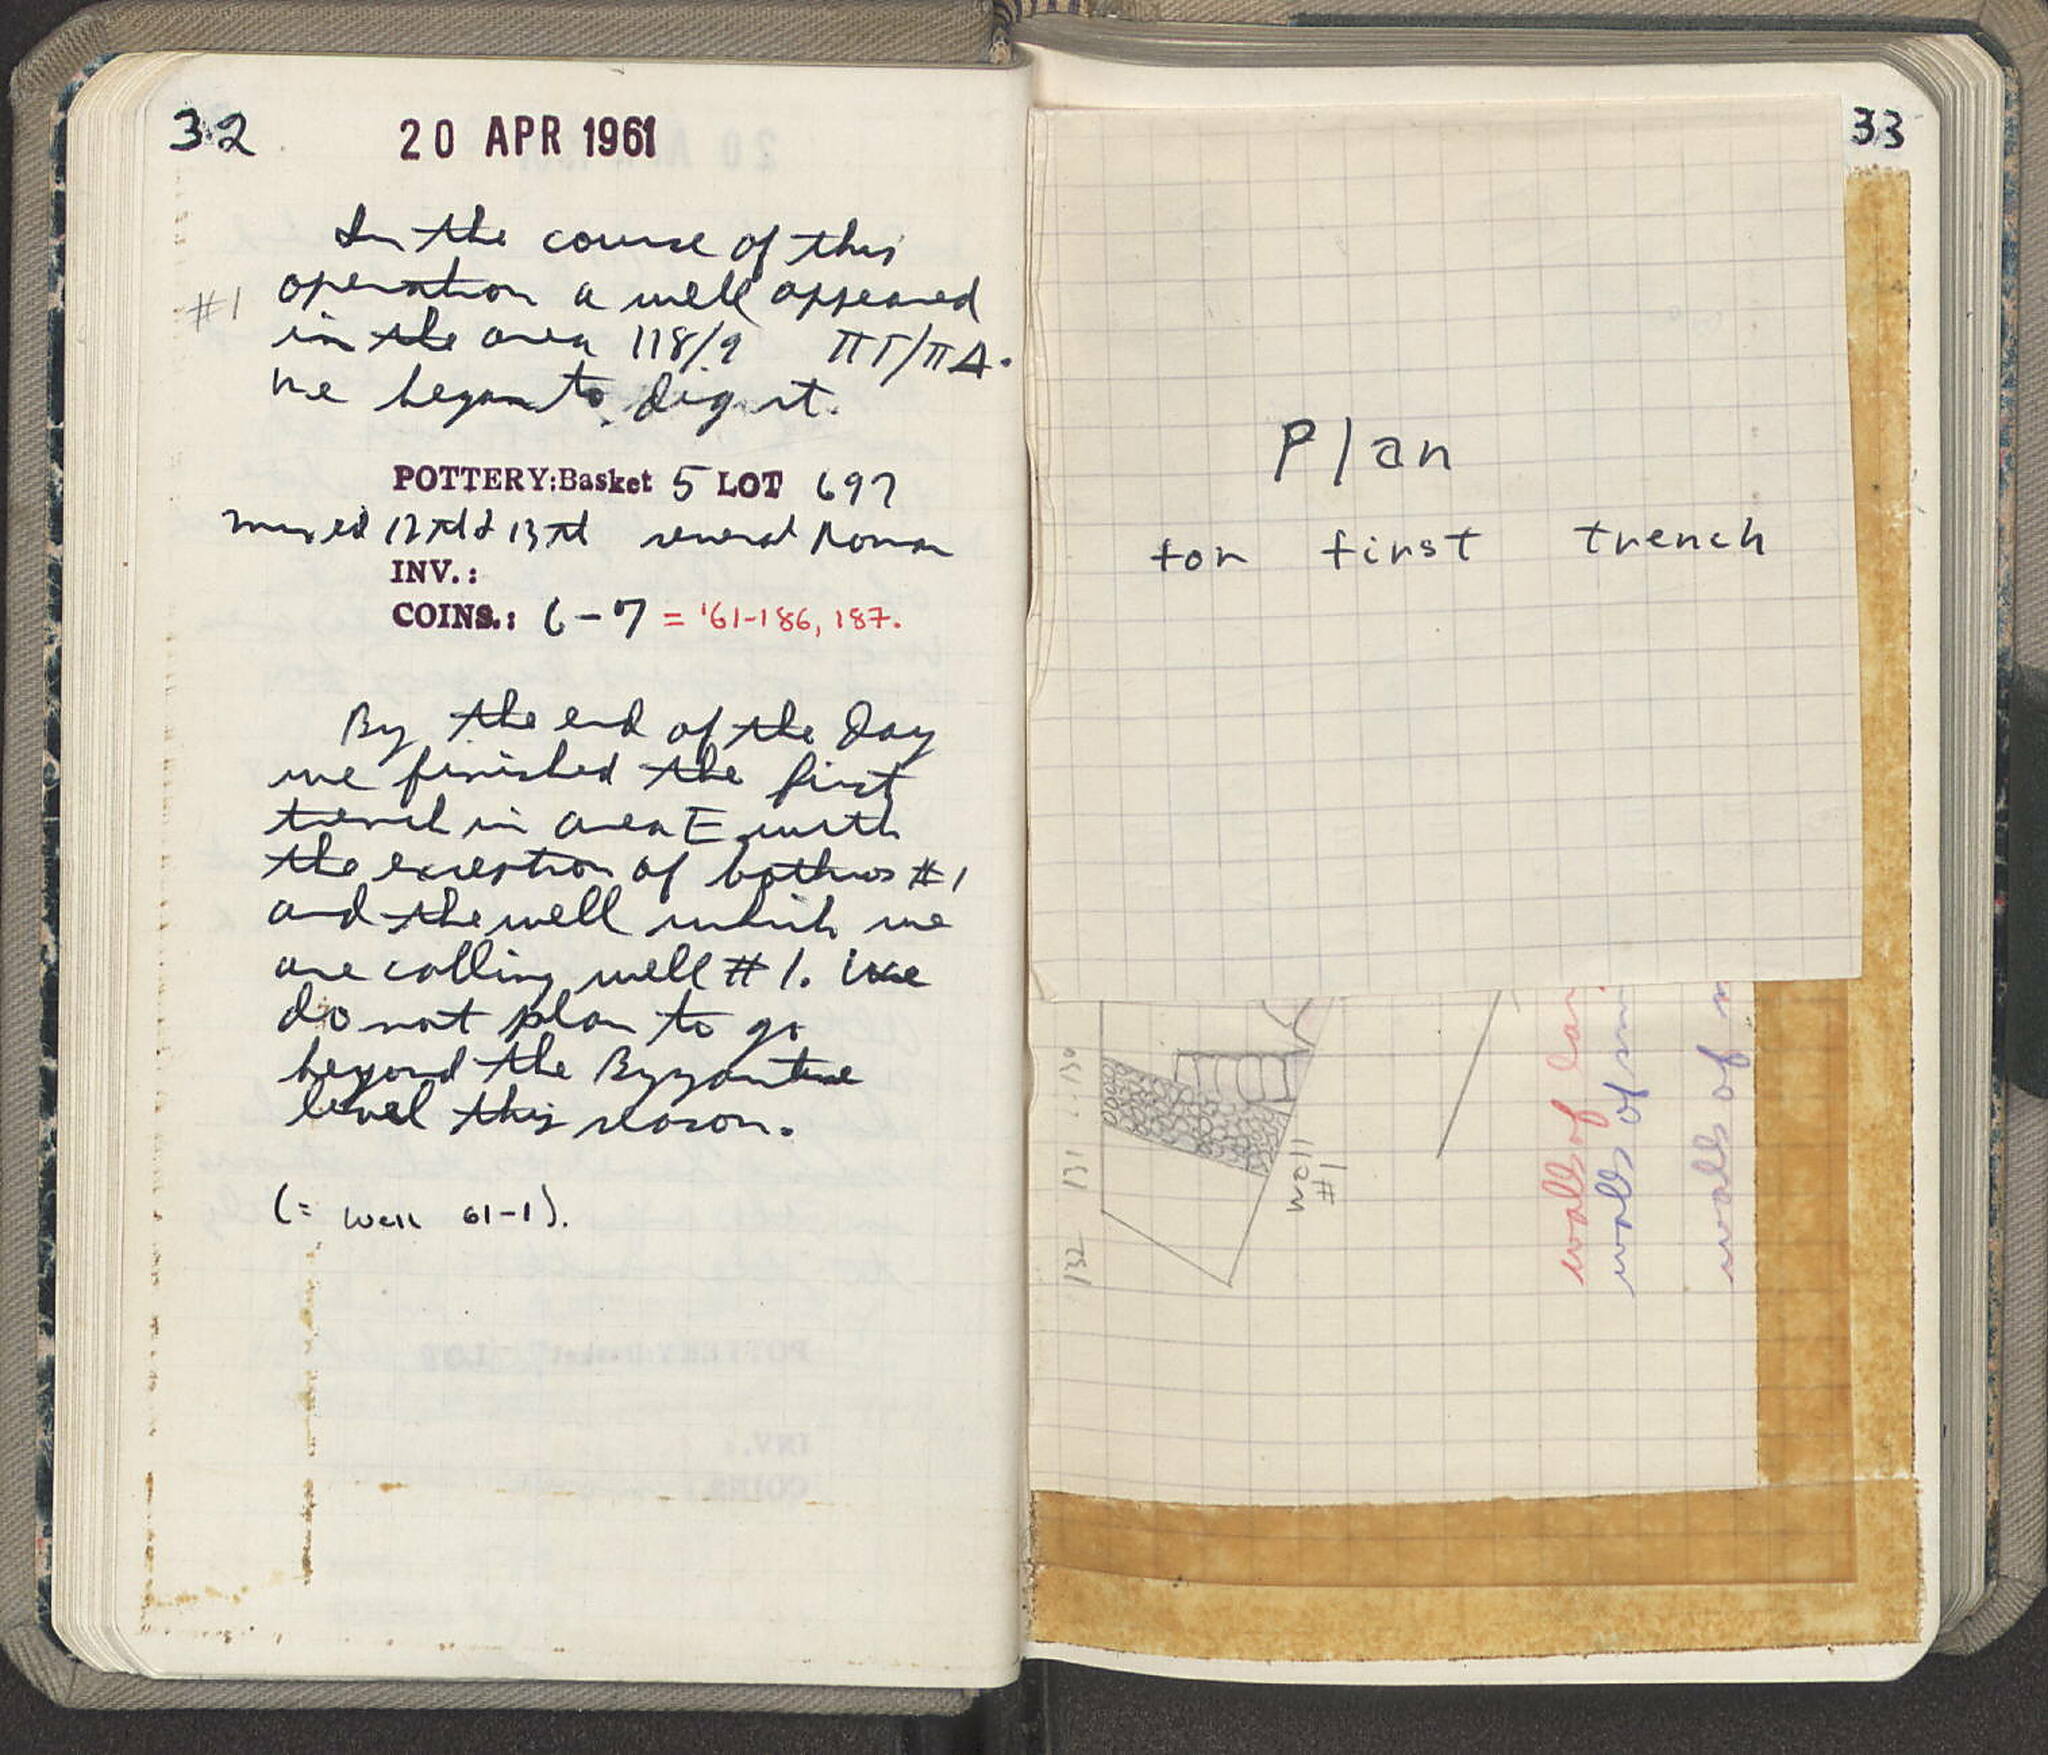 32
20 APR 1961
In the course of this
#1 operation a well appeared
in the area 118/9 ΠΓ/ΠΔ.
We began to dig it.
POTTERY:Basket 5 LOT 697
mixed 12th & 13th several Roman
INV.:
COINS.: 6-7 = '61-186, 187.
By the end of the day
we finished the first
trench in area E with
the exception of bothros #1
and the well which we
are calling well #1. We
do not plan to go
beyond the Byzantine
level this season.
(= Well 61-1).
33
Plan
for first trench
130
131
132
wall
#1
walls of
walls of
walls of